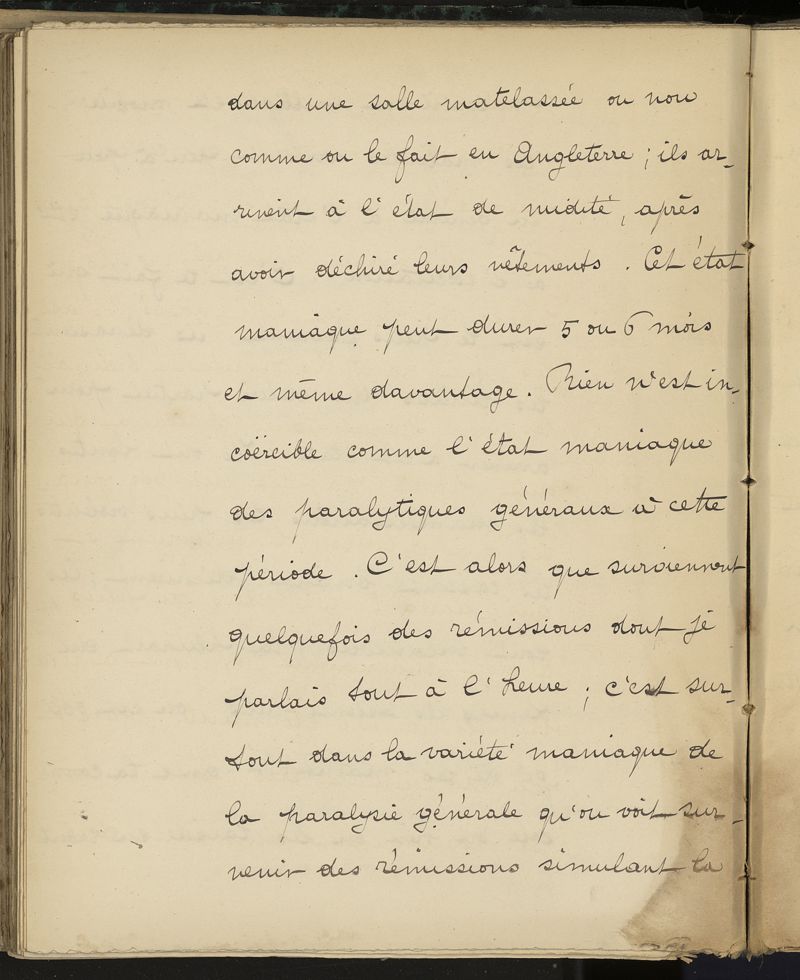 dans une salle matelassée ou non
comme on le fait en Angleterre ; ils ar-
rivent à l'état de nudité, après
avoir déchiré leurs vêtements. Cet état
maniaque peut durer 5 ou 6 mois
et même davantage. Rien n'est in-
coërcible comme l'état maniaque
des paralytiques généraux à cette
période. C'est alors que surviennent
quelquefois des rémissions dont je
parlais tout à l'heure ; c'est sur-
tout dans la variété maniaque de
la paralysie générale qu'on voit sur-
venir des rémissions simulant la